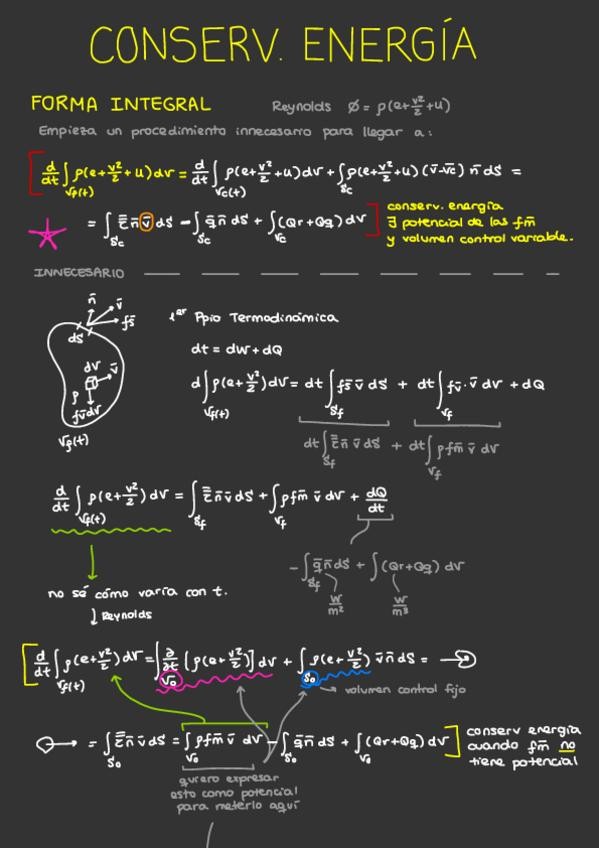 CONSERV. ENERGÍA
FORMA INTEGRAL Reynolds φ = ρ(e+v²/2+u)
Empieza un procedimiento innecesario para llegar a:
d/dt ∫_Vf(t) ρ(e+v²/2+u)dV = d/dt ∫_Vc(t) ρ(e+v²/2+u)dV + ∫_Sc ρ(e+v²/2+u)(v̄-v̄c) n̄ dS =
= ∫_Sc τ̿ n̄ v̄ dS - ∫_Sc q̄ n̄ dS + ∫_Vc (Qr+Qq) dV
conserv. energía
∃ potencial de las fm̄
y volumen control variable.
INNECESARIO
n̄ v̄ fs̄
dS
dV v̄
ρ
fv̄dV
Vf(t)
1er Ppio Termodinámica
dt = dW + dQ
d∫_Vf(t) ρ(e+v²/2)dV = dt ∫_Sf fs̄ v̄ dS + dt ∫_Vf fv̄·v̄ dV + dQ
dt∫_Sf τ̿ n̄ v̄ dS + dt∫_Vf ρfm̄ v̄ dV
d/dt ∫_Vf(t) ρ(e+v²/2)dV = ∫_Sf τ̿ n̄ v̄ dS + ∫_Vf ρfm̄ v̄ dV + dQ/dt
-∫_Sf q̄ n̄ dS + ∫_Vf (Qr+Qq) dV
W/m² W/m³
no sé cómo varía con t.
↓ Reynolds
d/dt ∫_Vf(t) ρ(e+v²/2)dV = ∫_V0 ∂/∂t [ρ(e+v²/2)] dV + ∫_S0 ρ(e+v²/2) v̄ n̄ dS =
volumen control fijo
= ∫_S0 τ̿ n̄ v̄ dS = ∫_V0 ρfm̄ v̄ dV - ∫_S0 q̄ n̄ dS + ∫_V0 (Qr+Qq) dV
conserv energía
cuando fm̄ no
tiene potencial
quiero expresar
esto como potencial
para meterlo aquí